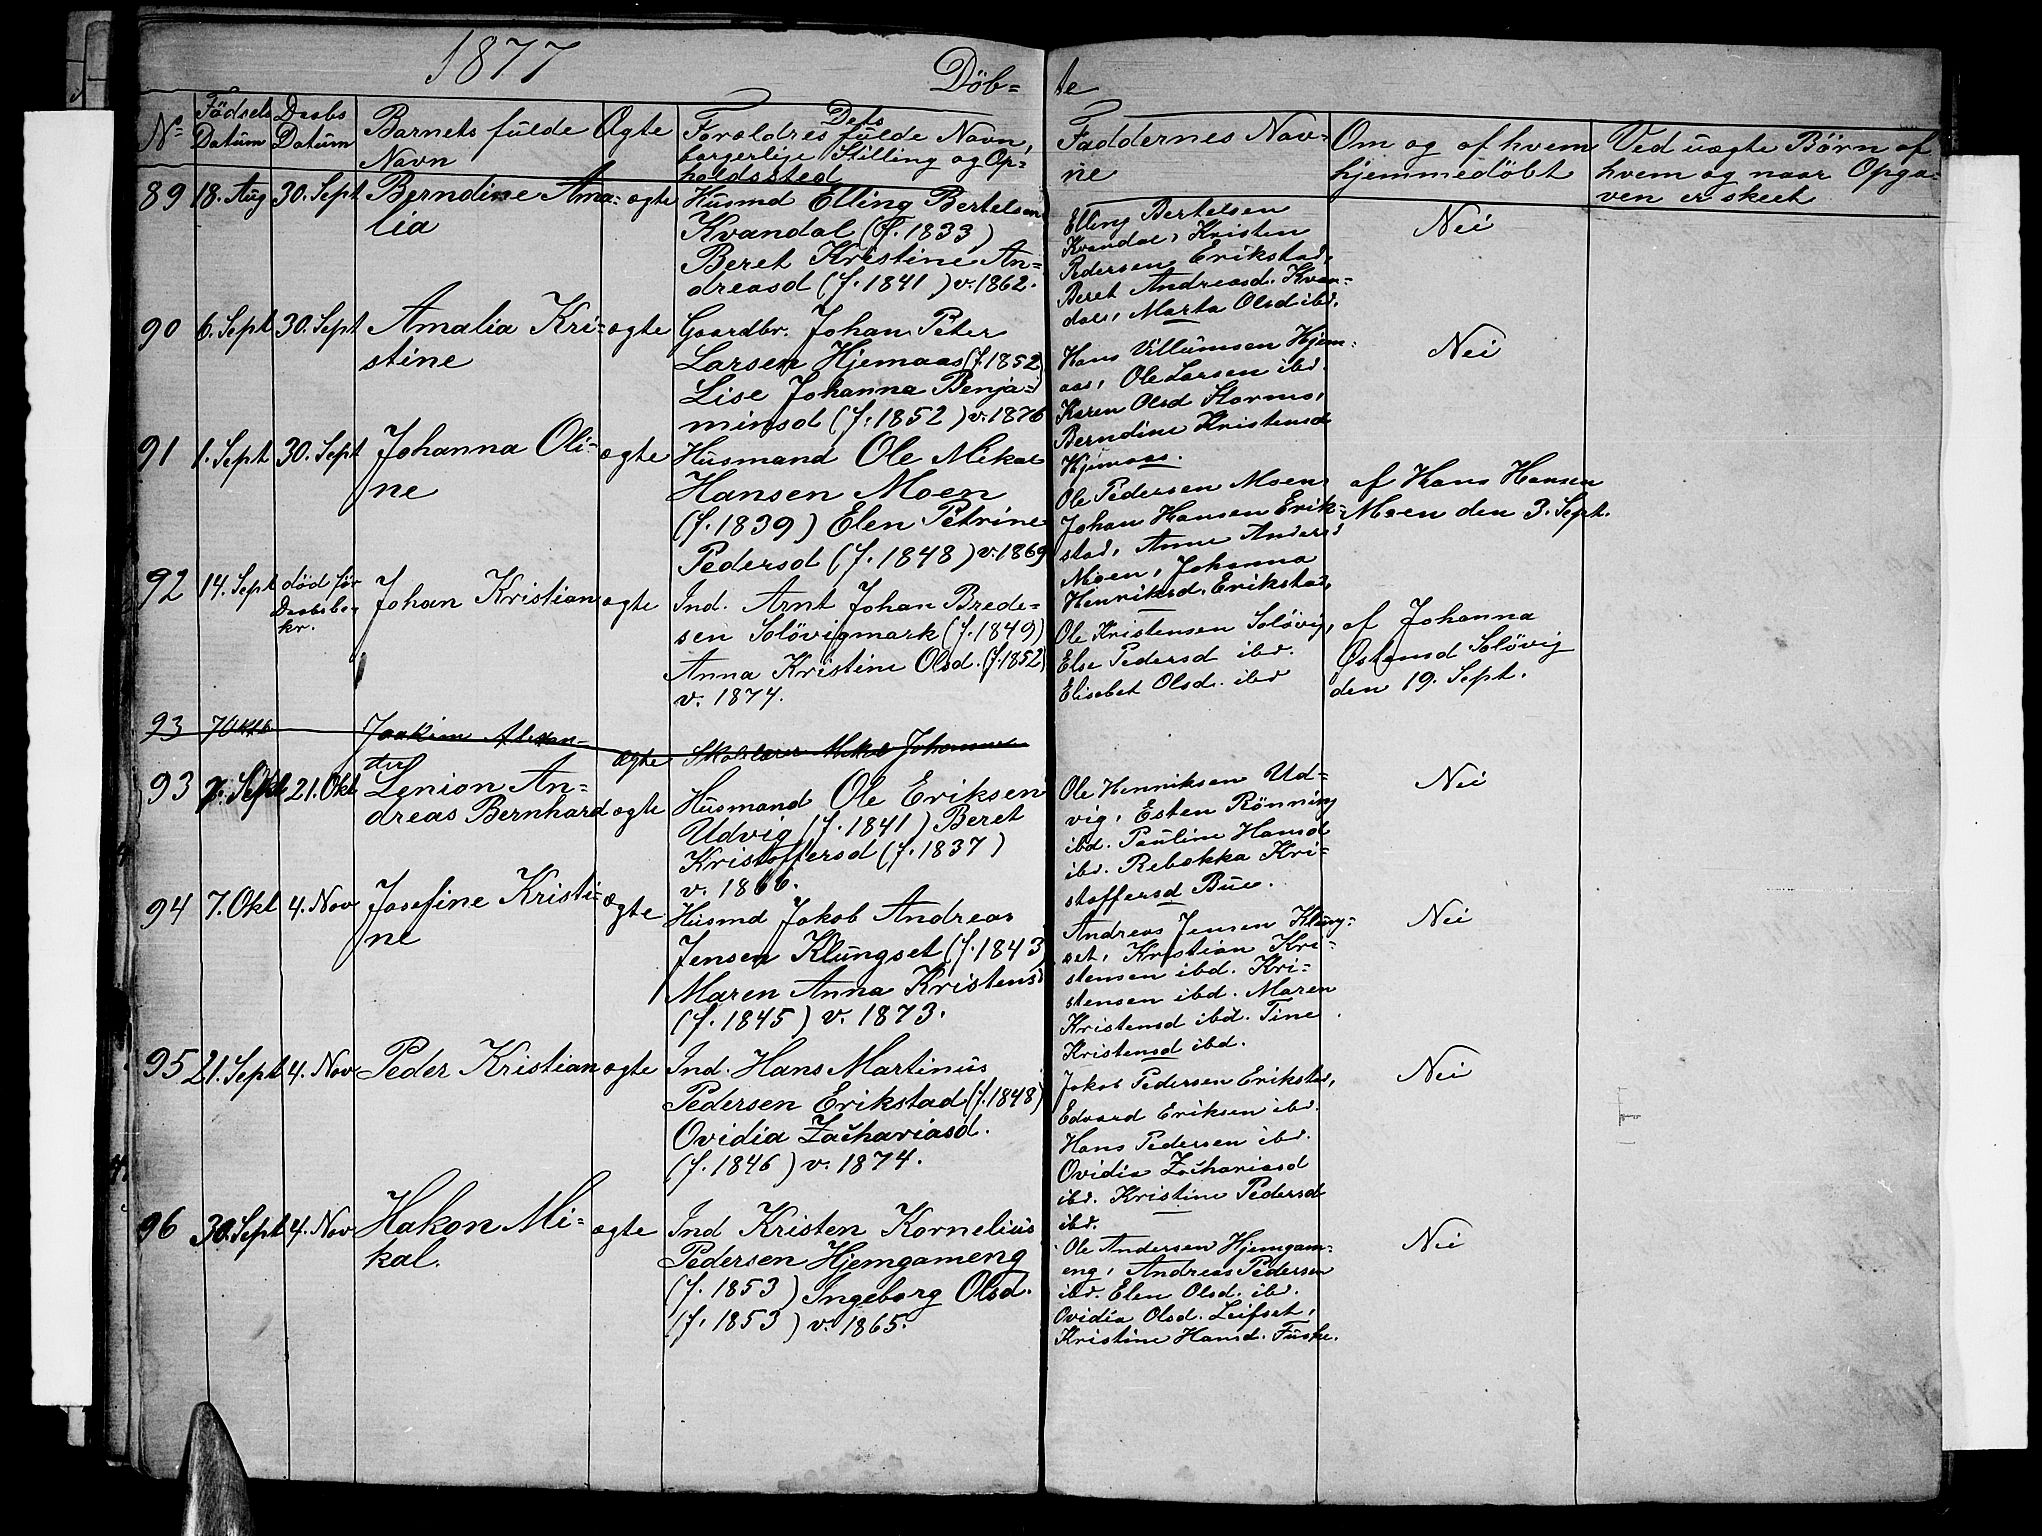 1877
Döb=
te
No
Födsels
Datum
Daabs
Datum
Barnets fulde
Navn
Ægte
Dets
Forældres fulde Navn,
borgerlige Stilling og Op=
holdssted
Faddernes Nav=
ne
Om og af hvem
hjemmedöbt
Ved uægte Börn af
hvem og naar Opga=
ven er skeet
89 18. Aug 30. Sept Berndine Ama=
lia
ægte
Husmd Elling Bertelsen
Kvandal (f. 1833)
Beret Kristine An=
dreasd (f. 1841) v. 1862.
Elling Bertelsen
Kvandal, Kristen
Pedersen Erikstad,
Beret Andreasd. Kvan=
dal, Marta Olsd ibd.
Nei
90 6. Sept 30. Sept Amalia Kri=
stine
ægte
Gaardbr. Johan Peter
Larsen Hjemaas (f. 1852)
Lise Johanna Benja=
minsd (f. 1852) v. 1876
Hans Villumsen Hjem=
aas, Ole Larsen ibd.
Karen Olsd Stormo,
Berndine Kristensd
Hjemaas.
Nei
91 1. Sept 30. Sept Johanna Oli=
ne
ægte
Husmand Ole Mikal
Hansen Moen
(f. 1839) Elen Petrine
Pedersd (f. 1848) v. 1869
Ole Pedersen Moen,
Johan Hansen Erik=
stad, Anne Andersd
Moen, Johanna
Henriksd. Erikstad,
af Hans Hansen
Moen den 3. Sept.
92 14. Sept död för
Daabsbe
kr.
Johan Kristian
ægte
Ind. Arnt Johan Brede=
sen Solövigmark (f. 1849)
Anna Kristine Olsd. (f. 1852)
v. 1874.
Ole Kristensen Solövig,
Else Pedersd ibd.
Elisebet Olsd. ibd
af Johanna
Östensd Solövig
den 19. Sept.
93 7 Okt Joakim Alexan=
der
ægte
Skolelærer Mikal Johannesen
93 7. Okt 21. Okt Lenion An=
dreas Bernhard
ægte
Husmand Ole Eriksen
Udvig (f. 1841) Beret
Kristoffersd (f. 1837)
v. 1866.
Ole Henriksen Ud=
vig, Esten Rönning
ibd. Pauline Hansd
ibd. Rebekka Kri=
stoffersd Bue.
Nei
94 7. Okt 4. Nov Josefine Kristi=
ne
ægte
Husmd Jakob Andreas
Jensen Klungset (f. 1843)
Maren Anna Kristensd
(f. 1845) v. 1873.
Andreas Jensen Klung=
set, Kristian Kri=
stensen ibd. Kri=
stensen ibd. Maren
Kristensd ibd. Tine
Kristensd ibd.
Nei
95 21. Sept 4. Nov Peder Kristian
ægte
Ind. Hans Martinus
Pedersen Erikstad (f. 1848)
Ovidia Zachariasd.
(f. 1846) v. 1874.
Jakob Pedersen Erikstad,
Edvard Eriksen ibd.
Hans Pedersen ibd.
Ovidia Zachariasd
ibd. Kristine Pedersd
ibd.
Nei
96 30. Sept 4. Nov Hakon Mi=
kal.
ægte
Ind Kristen Kornelius
Pedersen Hjemgameng
(f. 1853) Ingeborg Olsd.
(f. 1853) v. 1865.
Ole Andersen Hjemgam=
eng, Andreas Pedersen
ibd. Elen Olsd. ibd.
Ovidia Olsd. Leifset,
Kristine Hansd. Fuske.
Nei